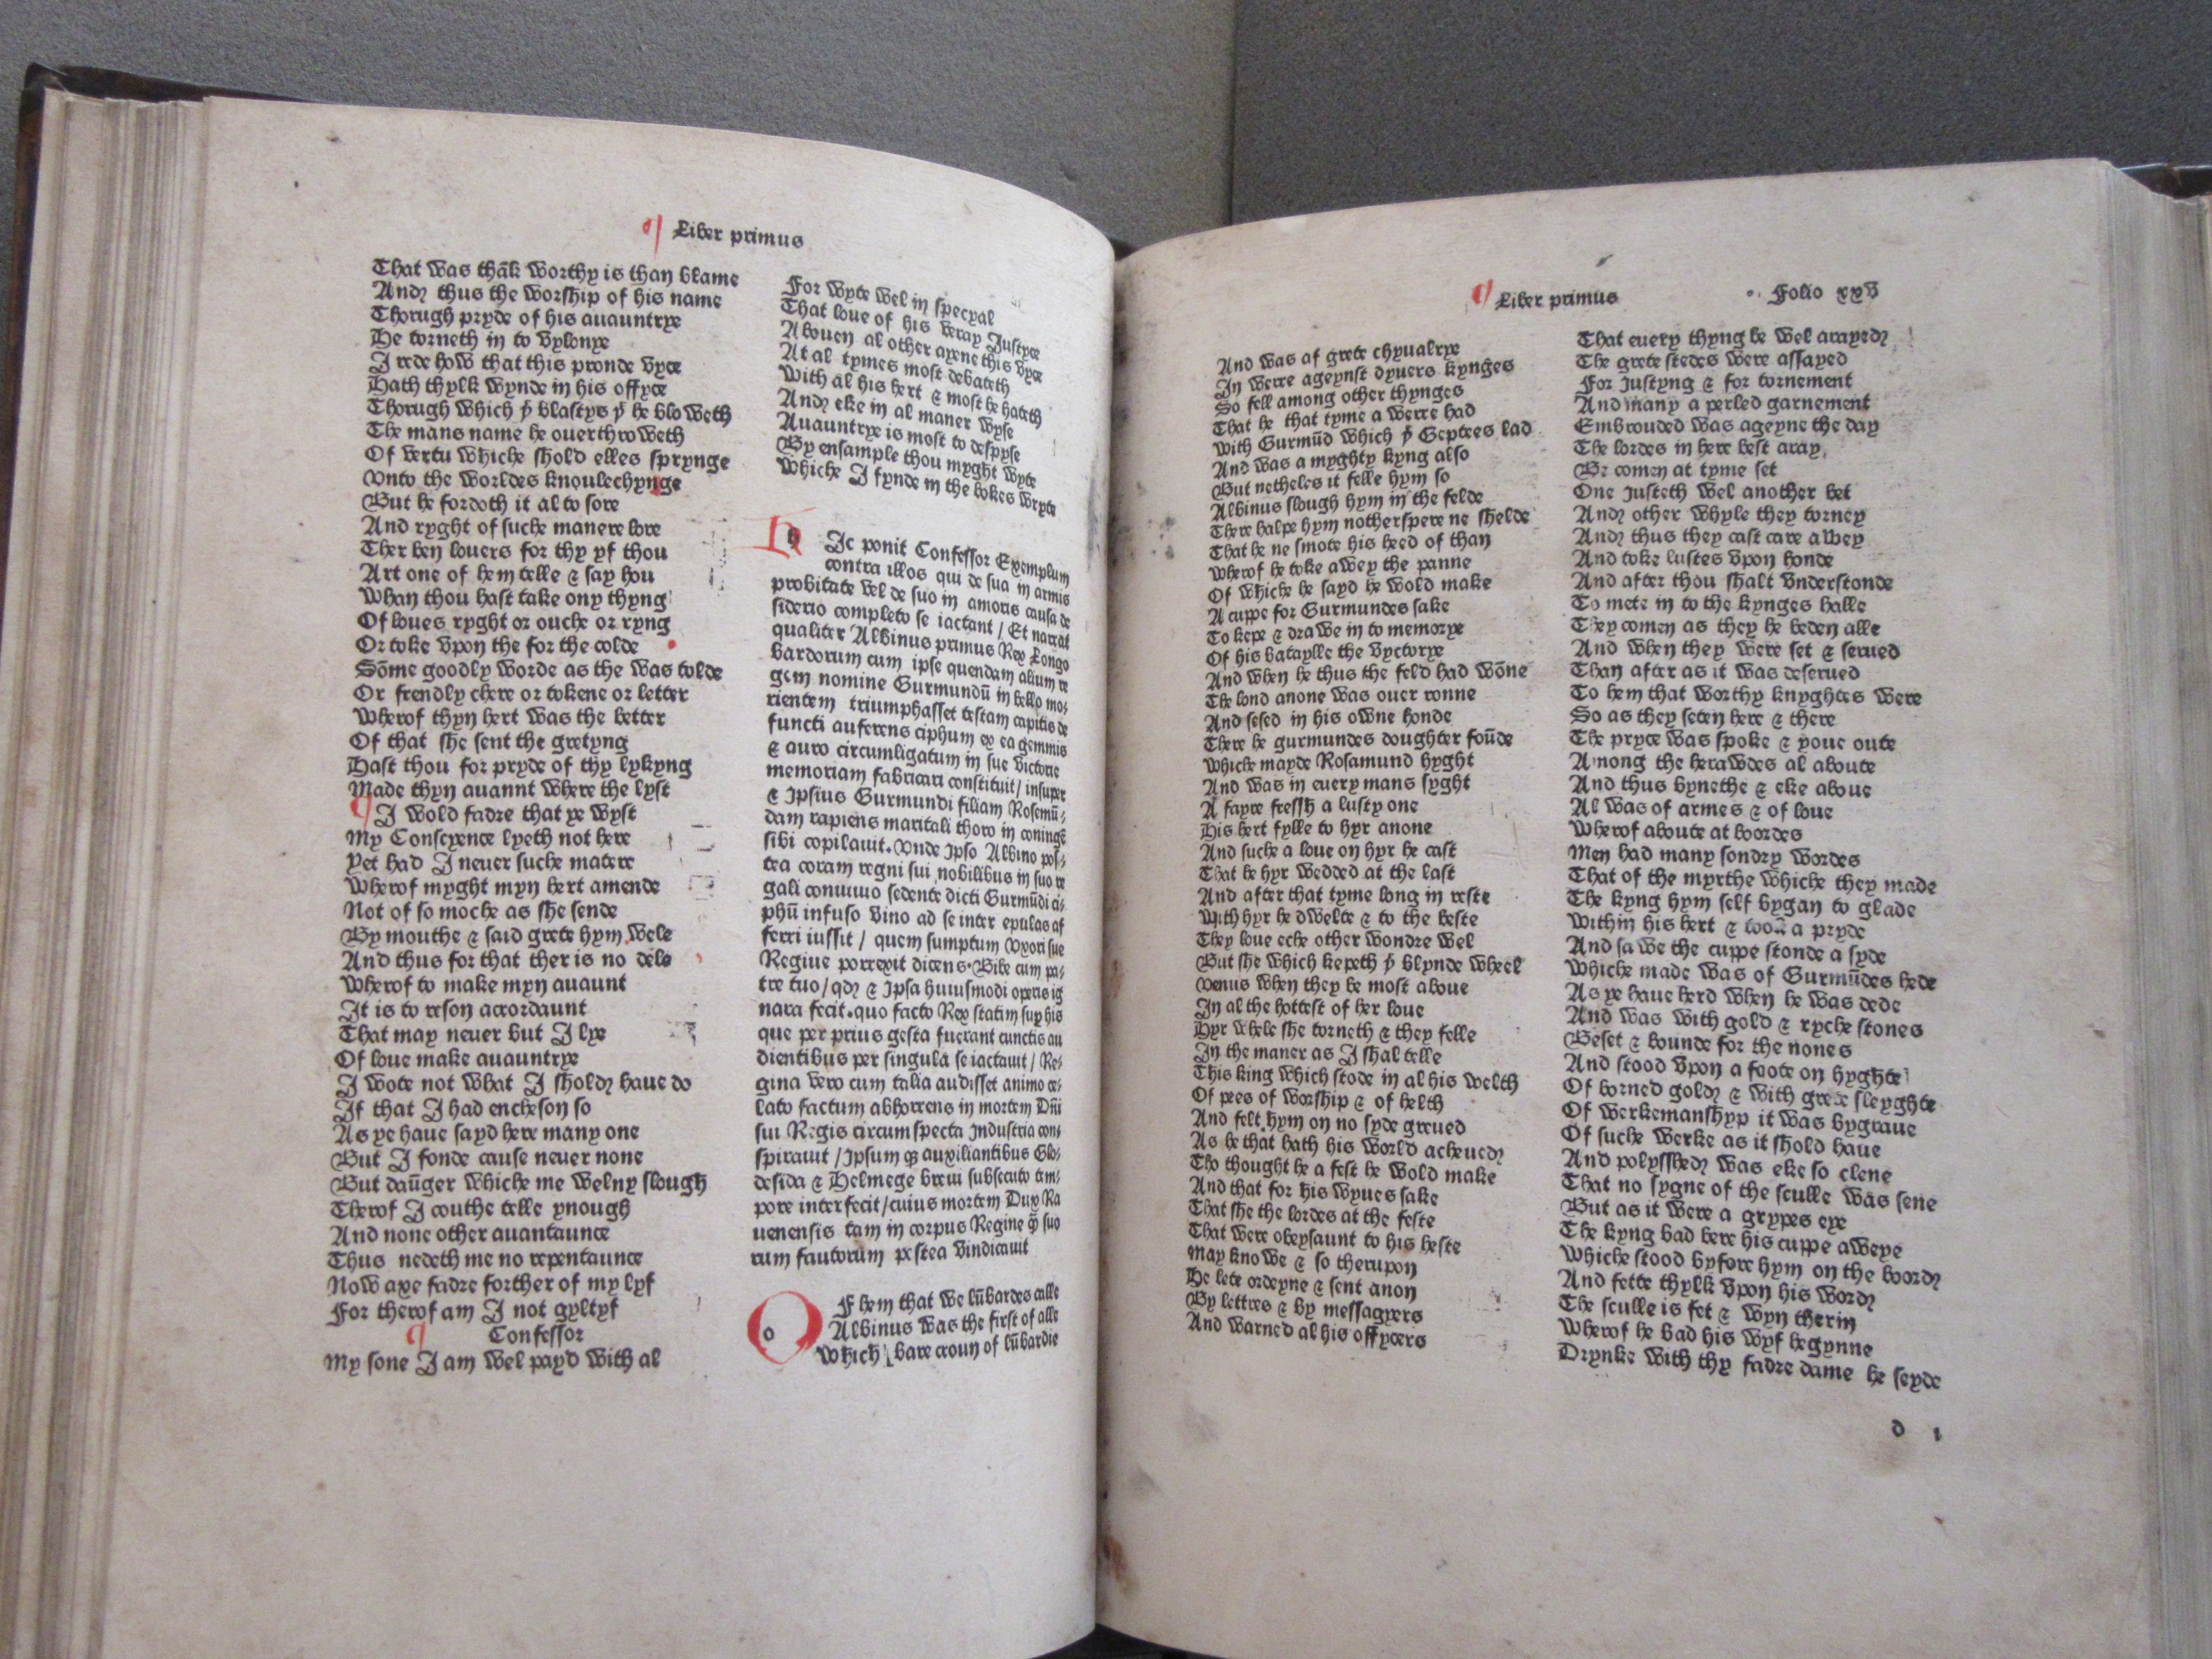 Liber primus
That was thãk worthy is than blame
And thus the worship of his name
Thorugh pryde of his auauntrye
He torneth in to vylonye
I rede how that this pronde vyce
Hath thylk wynde in his offyce
Thorugh which þͭ blastys þͭ he bloweth
The mans name he ouerthroweth
Of vertu whiche shold elles sprynge
Vnto the worldes knoulechynge
But he fordoth it al to sore
And ryght of suche manere lore
Ther ben louers for thy yf thou
Art one of hem telle & say hou
Whan thou hast take ony thyng
Of loues ryght or ouche or ryng
Or toke vpon the for the colde
Sõme goodly worde as the was tolde
Or frendly chere or tokene or letter
Wherof thyn hert was the better
Of that she sent the gretyng
Hast thou for pryde of thy lykyng
Made thyn auannt where the lyst
I wold fadre that ye wyst
My Conscyence lyeth not here
Yet had I neuer suche matere
Wherof myght myn hert amende
Not of so moche as she sende
By mouthe & said grete hym wele
And thus for that ther is no dele
Wherof to make myn auaunt
It is to reson accordaunt
That may neuer but I lye
Of loue make auauntrye
I wote not what I shold haue do
If that I had encheson so
As ye haue sayd here many one
But I fonde cause neuer none
But daũger whiche me welny slough
Therof I couthe telle ynough
And none other auantaunce
Thus nedeth me no repentaunce
Now axe fadre forther of my lyf
For therof am I not gyltyf
Confessor
My sone I am wel payd with al
For wyte wel in specyal
That loue of his veray Justyce
Abouen al other ayene this vyce
At al tymes most debateth
With al his hert & most he hateth
And eke in al maner wyse
Auauntrye is most to despyse
By ensample thou myght wyte
Whiche I fynde in the bokes wryte
h Ic ponit Confessor Exemplum
contra illos qui de sua in armis
probitate vel de suo in amoris causa de
siderio completo se iactant / Et narrat
qualiter Albinus primus Rex Longo
bardorum cum ipse quendam alium re
gem nomine Gurmundũ in bello mo⸗
rientem triumphasset testam capitis de
functi auferens ciphum ex ea gemmis
& auro circumligatum in sue victorie
memoriam fabricari constituit / insuper
& Ipsius Gurmundi filiam Rosemũ⸗
dam rapiens maritali thoro in coniugē
sibi copilauit. Vnde Ipso Albino pos⸗
tea coram regni sui nobilibus in suo re
gali conuiuio sedente dicti Gurmũdi ci⸗
phũ infuso vino ad se inter epulas af
ferri iussit / quem sumptum vxori sue
Regiue porrexit dicens. Bibe cum pa⸗
tre tuo / qd & Ipsa huiusmodi operis ig
nara fecit. quo facto Rex statim sup his
que per prius gesta fuerant cunctis au
dientibus per singula se iactauit / Re⸗
gina vero cum talia audisset animo ce⸗
lato factum abhorrens in mortem Dñi
sui Regis circumspecta Industria con⸗
spirauit / Ipsum qꝫ auxiliantibus Glo⸗
desida & Helmege breui subsecuto tem⸗
pore interfecit / cuius mortem Dux Ra
uenensis tam in corpus Regine q̃ suo
rum fautorum postea vindicauit
o F hem that we lũbardes calle
Albinus was the first of alle
Which bare croun of lũbardie
Liber primus Folio xxv
And was af grete chyualrye
In werre ageynst dyuers kynges
So fell among other thynges
That he that tyme a werre had
With Gurmũd which þͭ Geptees lad
And was a myghty kyng also
But netheles it felle hym so
Albinus slough hym in the felde
There halpe hym nother spere ne shelde
That he ne smote his heed of than
Wherof he toke awey the panne
Of whiche he sayd he wold make
A cuppe for Gurmundes sake
To kepe & drawe in to memorye
Of his bataylle the vyctorye
And when he thus the feld had wõne
The lond anone was ouer ronne
And sesed in his owne honde
There he gurmundes doughter foũde
Whiche mayde Rosamund hyght
And was in euery mans syght
A fayre fressh a lusty one
His hert fylle to hyr anone
And suche a loue on hyr he cast
That he hyr wedded at the last
And after that tyme long in reste
With hyr he dwelte & to the beste
They loue eche other wondre wel
But she which kepeth þͭ blynde wheel
Venus when they be most aboue
In al the hottest of her loue
Hyr whele she torneth & they felle
In the maner as I shal telle
This king which stode in al his welth
Of pees of worship & of helth
And felt hym on no syde greued
As he that hath his world acheued
Tho thought he a fest he wold make
And that for his wyues sake
That she the lordes at the feste
That were obeysaunt to his heste
May knowe & so therupon
He lete ordeyne & sent anon
By lettres & by messagyers
And warned al his offycers
That euery thyng be wel arayed
The grete stedes were assayed
For Justyng & for tornement
And many a perled garnement
Embrouded was ageyne the day
The lordes in here best aray
Be comen at tyme set
One Justeth wel another bet
And other whyle they torney
And thus they cast care alwey
And toke lustes vpon honde
And after thou shalt vnderstonde
To mete in to the kynges halle
They comen as they be beden alle
And when they were set & serued
Than after as it was deserued
To hem that worthy knyghtes were
So as they seten here & there
The pryce was spoke & youe oute
Among the herawdes al aboute
And thus bynethe & eke aboue
Al was of armes & of loue
Wherof aboute at boordes
Men had many sondry wordes
That of the myrthe whiche they made
The kyng hym self bygan to glade
Within his hert & took a pryde
And sawe the cuppe stonde a syde
Whiche made was of Gurmũdes hede
As ye haue herd when he was dede
And was with gold & ryche stones
Beset & bounde for the nones
And stood vpon a foote on hyghte
Of borned gold & with grete sleyghte
Of werkemanshyp it was bygraue
Of suche werke as it shold haue
And polysshed was eke so clene
That no sygne of the sculle was sene
But as it were a grypes eye
The kyng bad bere his cuppe aweye
Whiche stood byfore hym on the boord
And fette thylk vpon his word
The sculle is fet & wyn therin
Wherof he bad his wyf begynne
Drynke with thy fadre dame he seyde
d 1